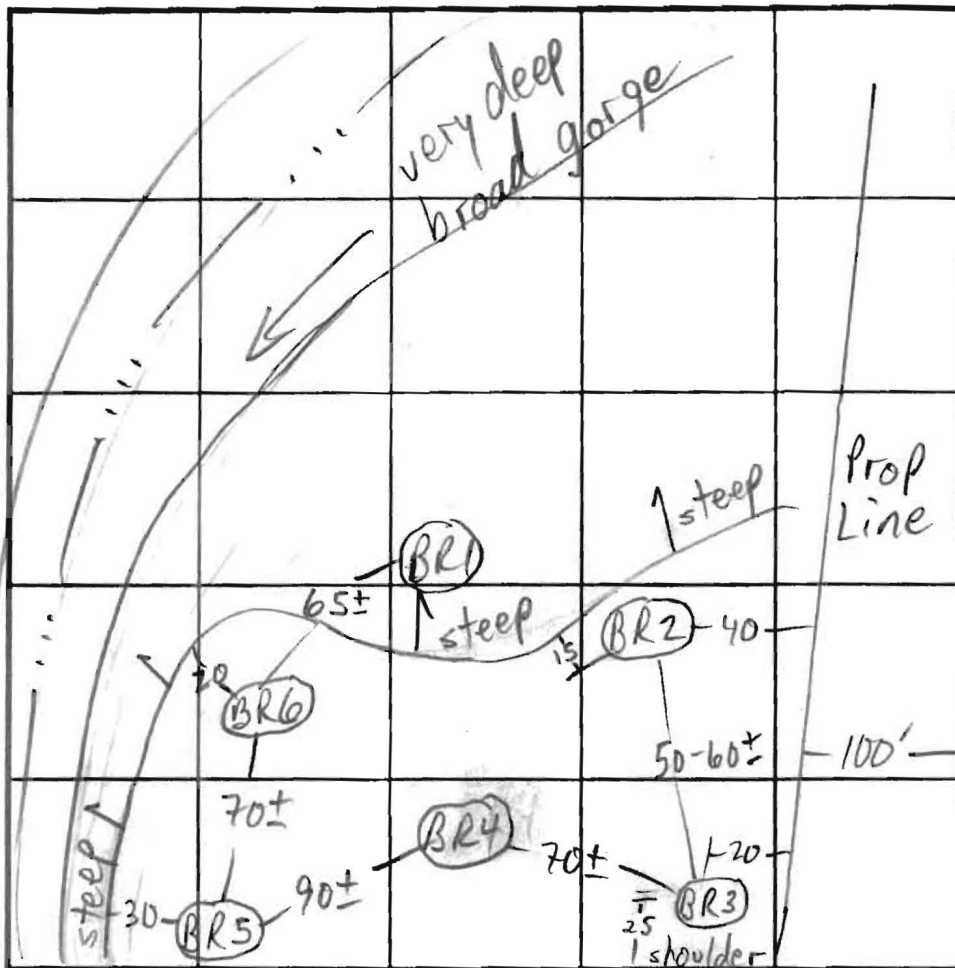 very deep
broad gorge
steep
Prop
Line
BR1
65±
steep
BR2
40
15
20
BR6
50-60±
100'
70±
BR4
20
70±
90±
steep
30
BR5
BR3
25
1 shoulder